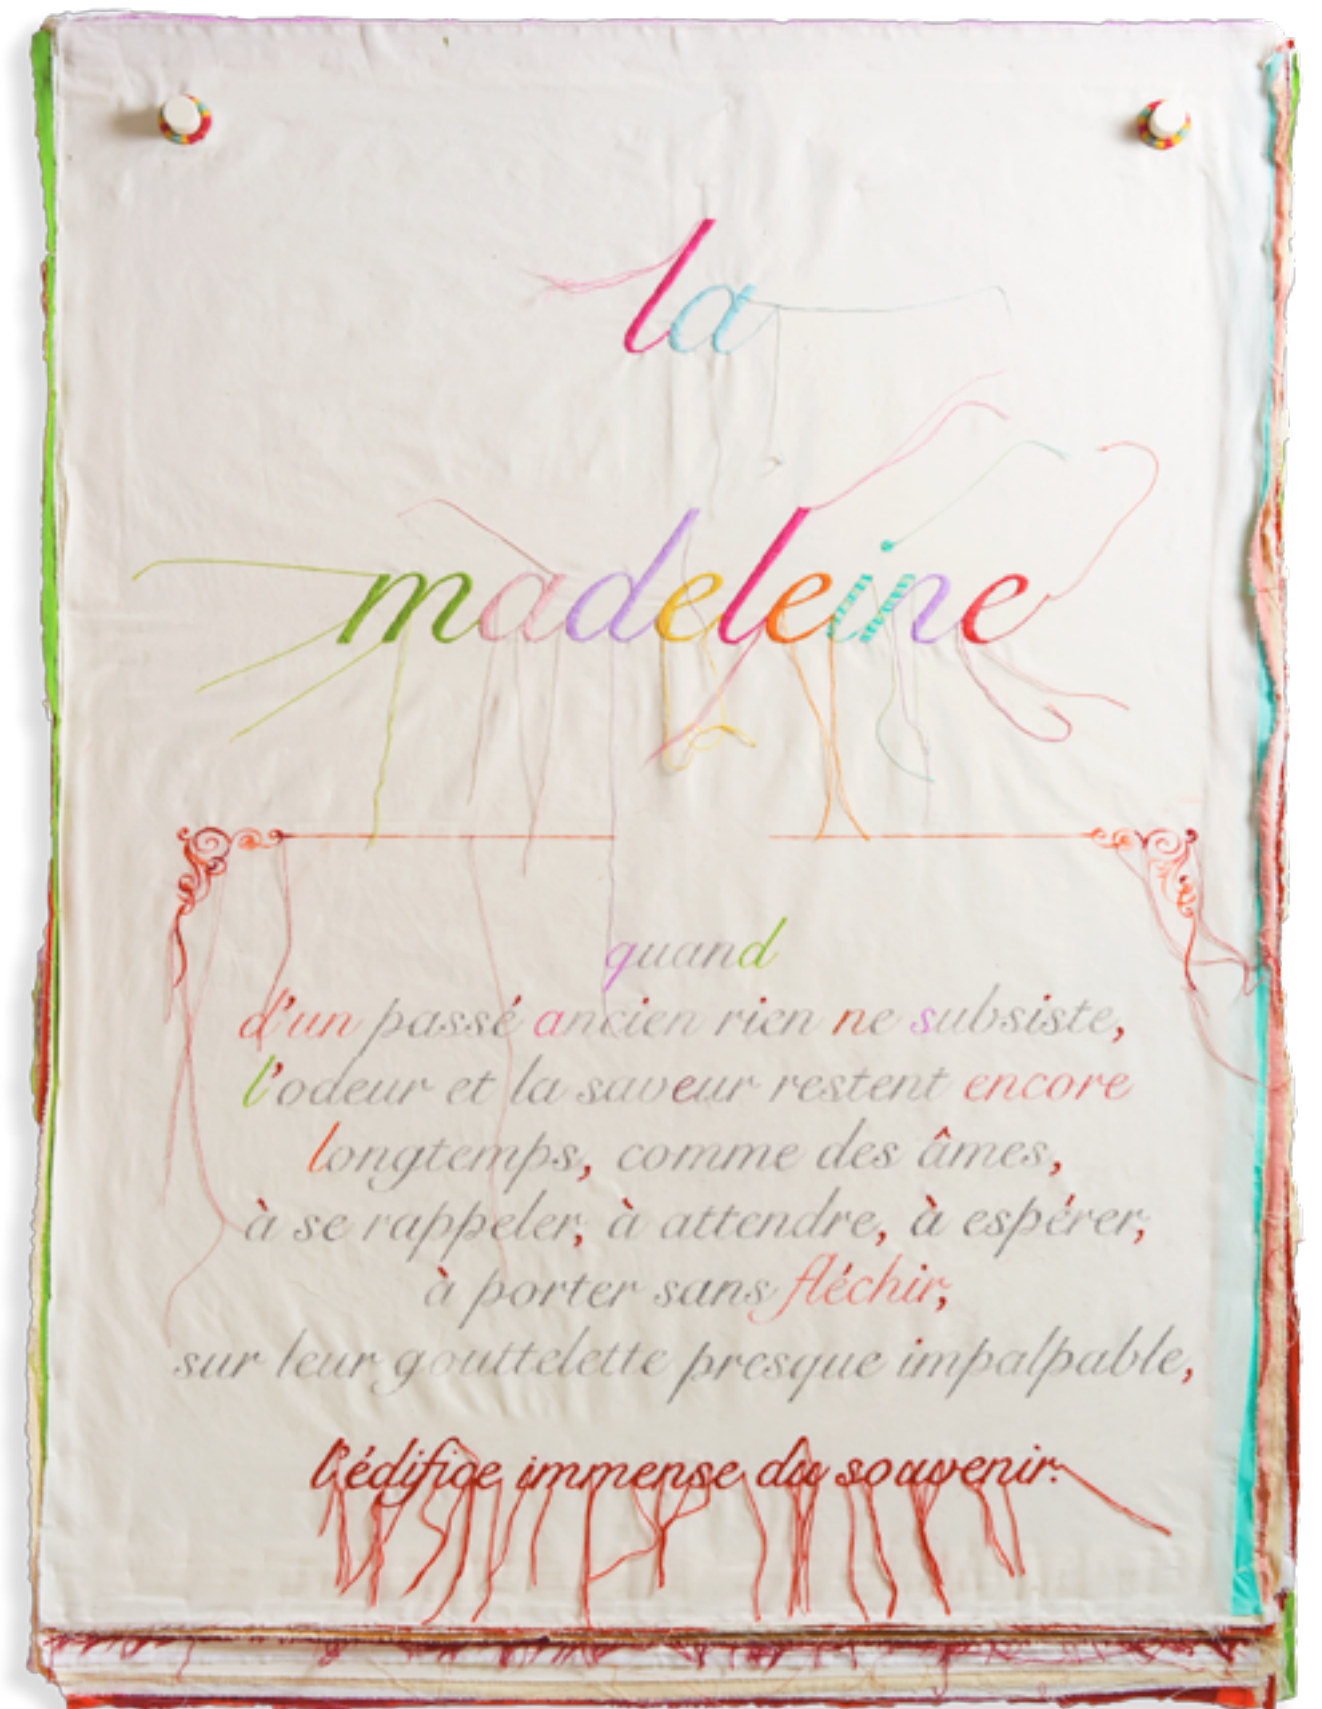 la
madeleine
quand
d'un passé ancien rien ne subsiste,
l'odeur et la saveur restent encore
longtemps, comme des âmes,
à se rappeler, à attendre, à espérer,
à porter sans fléchir,
sur leur gouttelette presque impalpable,
l'édifice immense du souvenir.